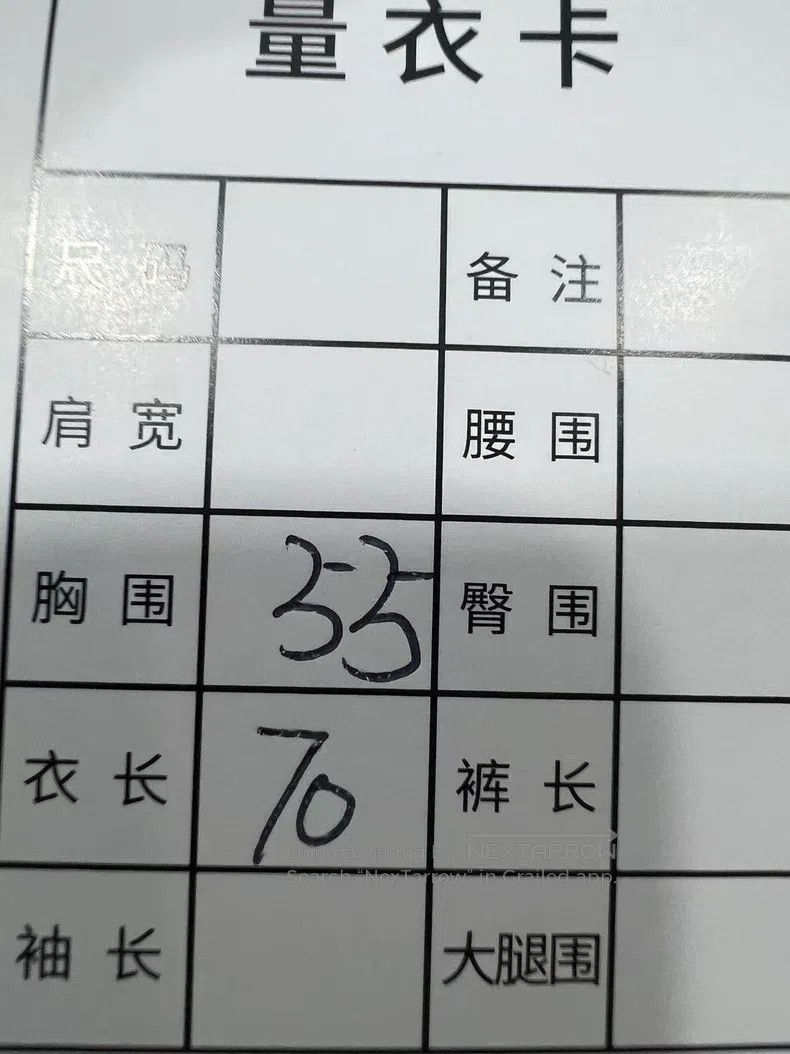 量衣卡
尺码 备注
肩宽 腰围
胸围 55 臀围
衣长 70 裤长
NEXTARROW
Search "NexTarrow" in Grailed app.
袖长 大腿围